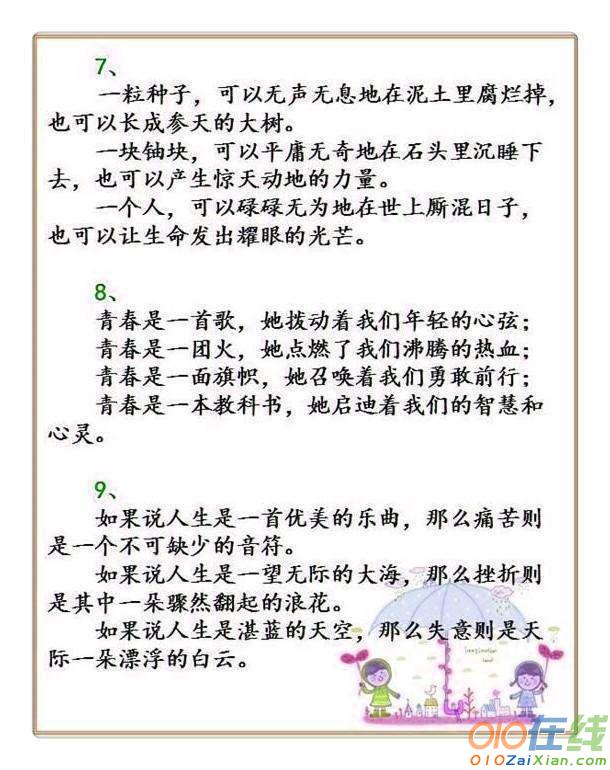 7、
一粒种子，可以无声无息地在泥土里腐烂掉，
也可以长成参天的大树。
一块铀块，可以平庸无奇地在石头里沉睡下
去，也可以产生惊天动地的力量。
一个人，可以碌碌无为地在世上厮混日子，
也可以让生命发出耀眼的光芒。
8、
青春是一首歌，她拨动着我们年轻的心弦；
青春是一团火，她点燃了我们沸腾的热血；
青春是一面旗帜，她召唤着我们勇敢前行；
青春是一本教科书，她启迪着我们的智慧和
心灵。
9、
如果说人生是一首优美的乐曲，那么痛苦则
是一个不可缺少的音符。
如果说人生是一望无际的大海，那么挫折则
是其中一朵骤然翻起的浪花。
如果说人生是湛蓝的天空，那么失意则是天
际一朵漂浮的白云。
imagination
land
010在线
010ZaiXian.com